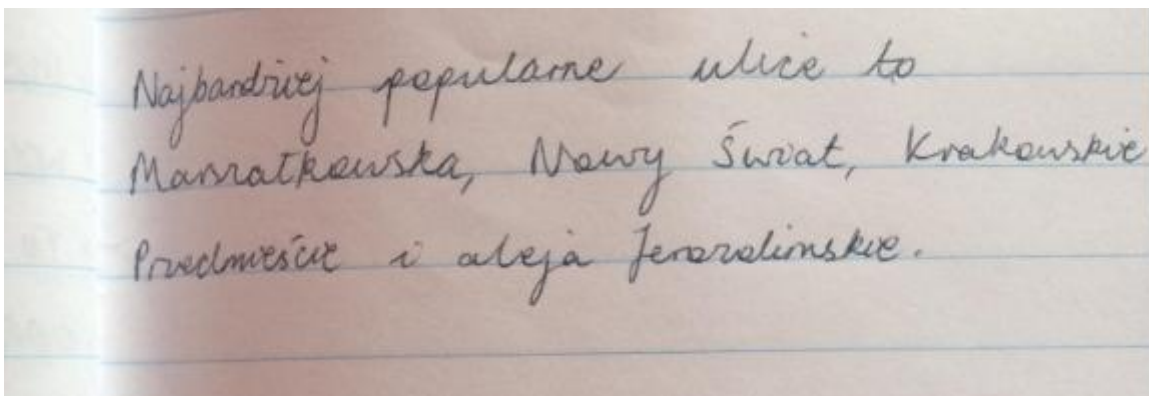 Najbardziej popularne ulice to
Marszałkowska, Nowy Świat, Krakowskie
Przedmieście i aleja Jerozolimskie.